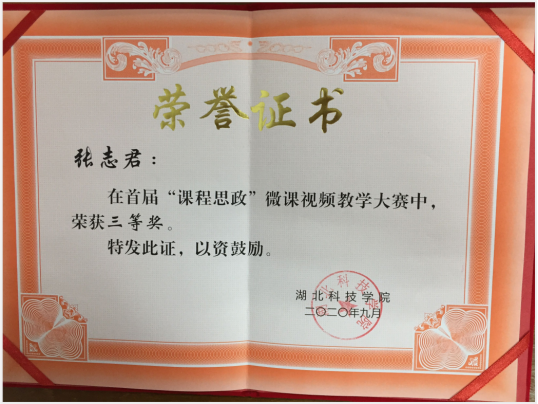 荣誉证书
张志君：
在首届“课程思政”微课视频教学大赛中，
荣获三等奖。
特发此证，以资鼓励。
湖北科技学院
二〇二〇年九月
湖北科技学院